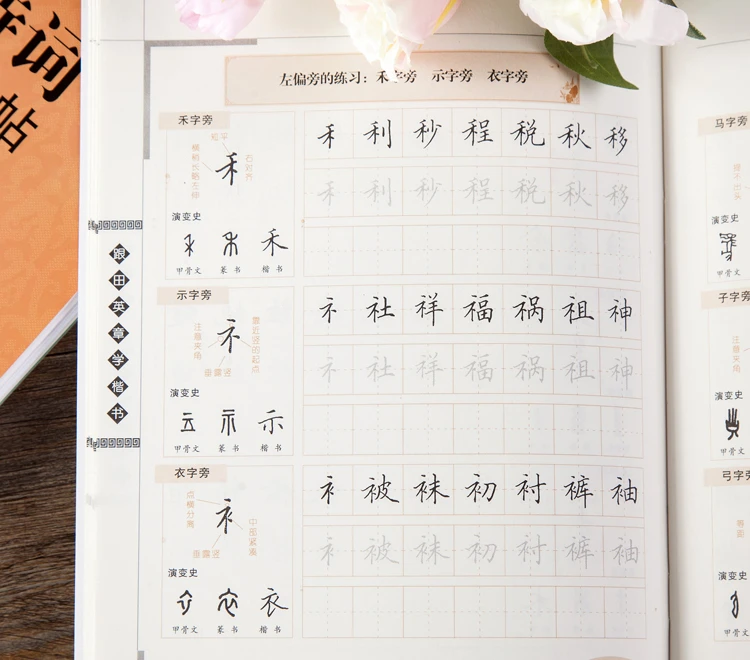 词
帖
跟田英章学楷书
左偏旁的练习：禾字旁 示字旁 衣字旁
禾字旁
短平
横稍长略左伸
右对齐
禾
演变史
甲骨文 篆书 楷书
禾
禾 利 秒 程 税 秋 移
禾 利 秒 程 税 秋 移
示字旁
注意夹角
靠近竖的起点
垂露竖
礻
演变史
甲骨文 篆书 楷书
示
礻 社 祥 福 祸 祖 神
礻 社 祥 福 祸 祖 神
衣字旁
点横分离
中部紧凑
垂露竖
衤
演变史
甲骨文 篆书 楷书
衣
衤 被 袜 初 衬 裤 袖
衤 被 袜 初 衬 裤 袖
马字旁
演变史
甲骨文
子字旁
注意夹角
演变史
甲骨文
弓字旁
演变史
甲骨文